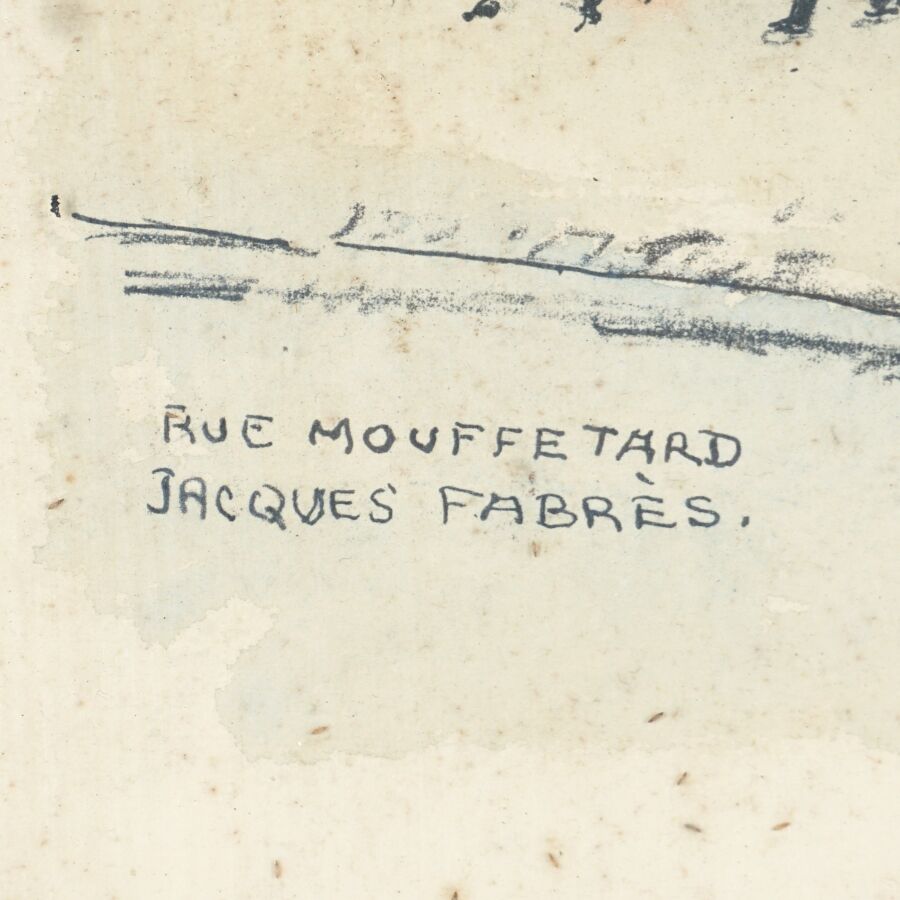 RUE MOUFFETARD
JACQUES FABRÈS.